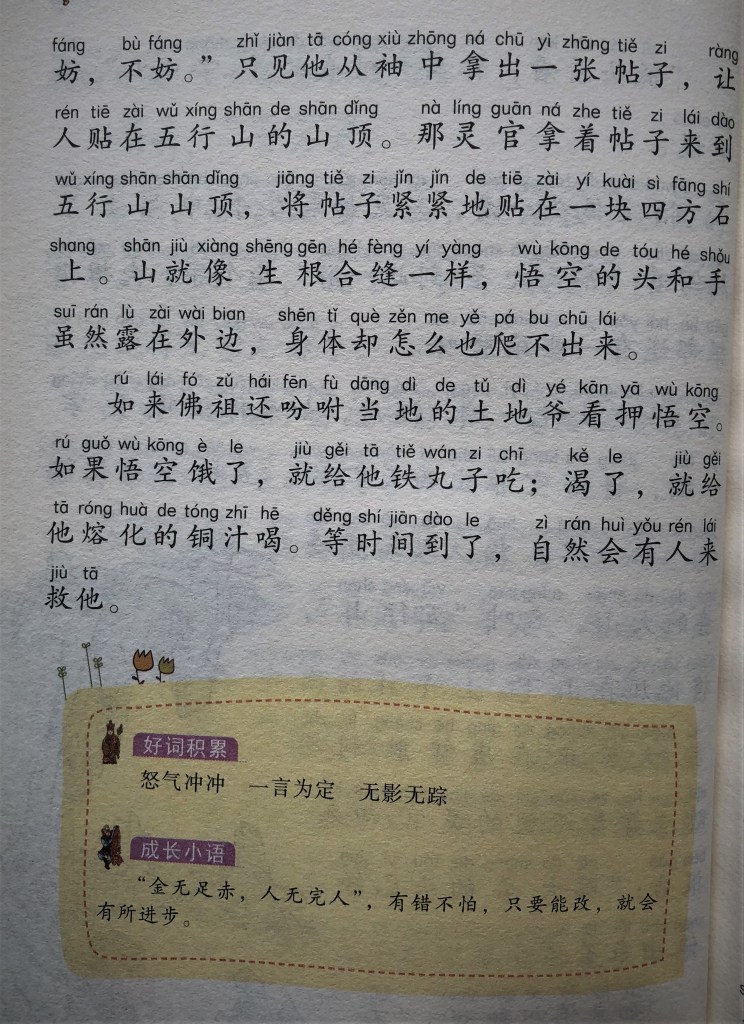 fáng bù fáng zhǐ jiàn tā cóng xiù zhōng ná chū yì zhāng tiě zi ràng
妨，不妨。”只见他从袖中拿出一张帖子，让
rén tiē zài wǔ xíng shān de shān dǐng nà líng guān ná zhe tiě zi lái dào
人贴在五行山的山顶。那灵官拿着帖子来到
wǔ xíng shān shān dǐng jiāng tiě zi jǐn jǐn de tiē zài yí kuài sì fāng shí
五行山山顶，将帖子紧紧地贴在一块四方石
shang shān jiù xiàng shēng gēn hé fèng yí yàng wù kōng de tóu hé shǒu
上。山就像生根合缝一样，悟空的头和手
suī rán lù zài wài bian shēn tǐ què zěn me yě pá bu chū lái
虽然露在外边，身体却怎么也爬不出来。
rú lái fó zǔ hái fēn fù dāng dì de tǔ dì yé kān yā wù kōng
如来佛祖还吩咐当地的土地爷看押悟空。
rú guǒ wù kōng è le jiù gěi tā tiě wán zi chī kě le jiù gěi
如果悟空饿了，就给他铁丸子吃；渴了，就给
tā róng huà de tóng zhī hē děng shí jiān dào le zì rán huì yǒu rén lái
他熔化的铜汁喝。等时间到了，自然会有人来
jiù tā
救他。
好词积累
怒气冲冲 一言为定 无影无踪
成长小语
“金无足赤，人无完人”，有错不怕，只要能改，就会
有所进步。